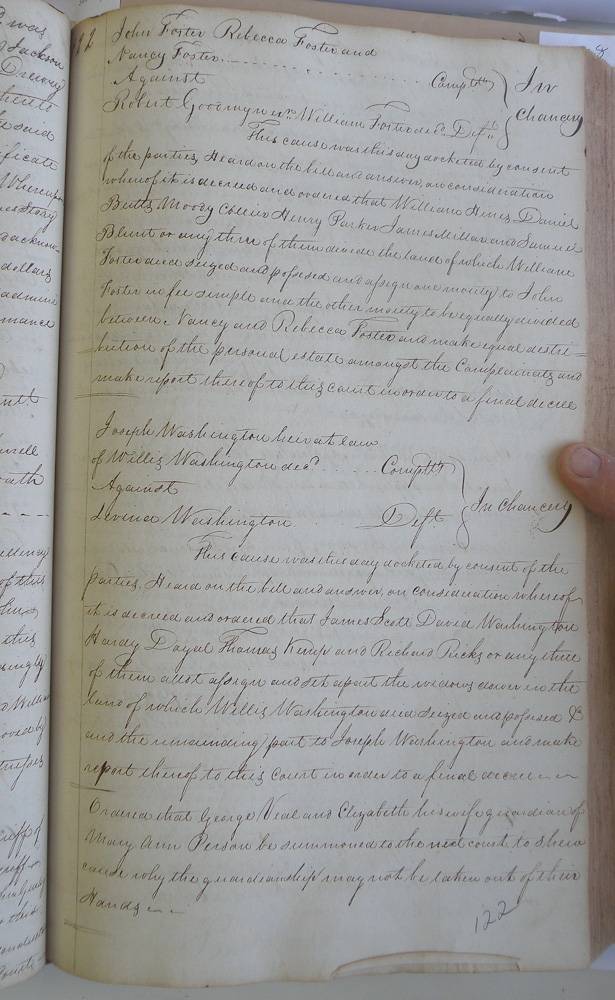 122
John Foster Rebecca Foster and
Nancy Foster
Complts
In
Against
Chancery
Robert Goodwyn exr. William Foster decd. Deft.
This cause was this day docketed by consent
of the parties, Heard on the bill and answer, on consideration
whereof it is decreed and ordered that William Hines, Daniel
Butts, Moody Collier Henry Parker James Millar and Samuel
Blunt or any three of them devide the land of which William
Foster died seized and possesed and assign one moiety to John
Foster in fee simple and the other moiety to be equally divided
between Nancy and Rebecca Foster and make equal destri=
bution of the personal estate amongst the Complainants and
make report thereof to this court in order to a final decree
Joseph Washington heir at law
of Willis Washington decd. Complt
Against
In Chancery
Levina Washington Deft
This cause was this day docketed by consent of the
parties, Heard on the bill and answer, on consideration whereof
it is decreed and ordered that James Scott David Washington
Hardy Doyal Thomas Kemp and Richard Ricks or any three
of them allot assign and set apart the widows dower in the
land of which Willis Washington died Seized and possesed &
and the remainding part to Joseph Washington and make
report thereof to this Court in order to a final decree
Ordered that George Veal and Elizabeth his wife guardian of
Mary Ann Person be summoned to the next court to shew
cause why the guardianship may not be taken out of their
Hands
122